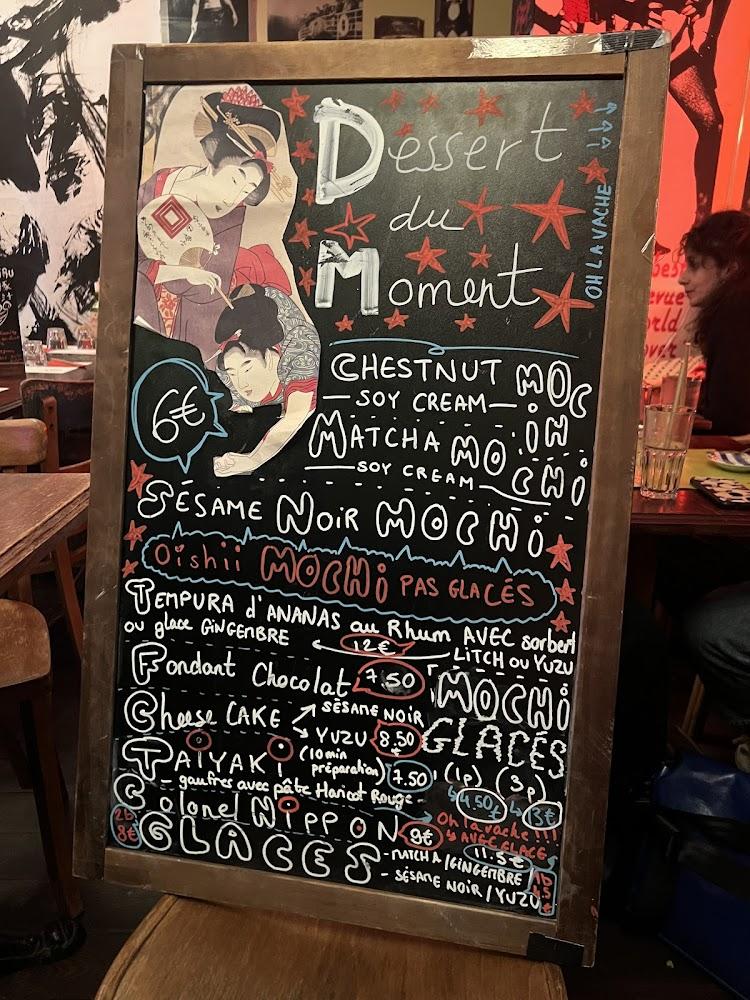 Dessert
du
Moment
OH LA VACHE
6€
CHESTNUT MOCHI
— SOY CREAM —
MATCHA MOCHI
— SOY CREAM —
SÉSAME NOIR MOCHI
Oishii MOCHI PAS GLACÉS
TEMPURA d'ANANAS au Rhum AVEC sorbet
ou glace GINGEMBRE 12€ LITCH OU YUZU
Fondant Chocolat 7.50
MOCHI
GLACÉS
(1p) (3p)
4.50€ 3€
Cheese CAKE SÉSAME NOIR
YUZU 8.50€
TAIYAKI (10min préparation) 7.50
- gaufres avec pâte Haricot Rouge -
Colonel NIPPON 9€
Oh la vache !!!
AVEC GLACE
11.5€
2b 8€
GLACES
- MATCHA / GINGEMBRE
- SÉSAME NOIR / YUZU
best
revue
world
over